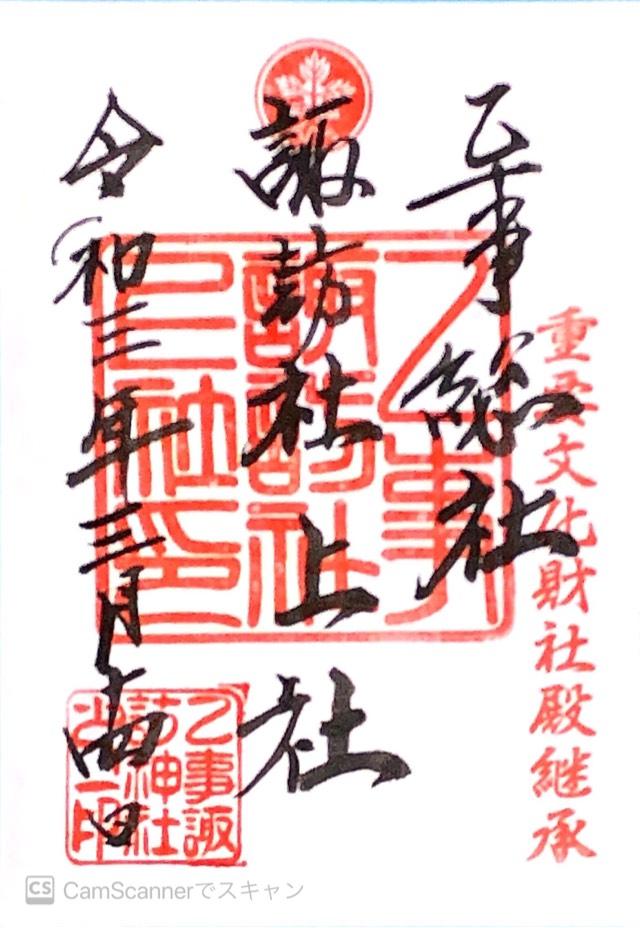 重要文化財社殿継承
乙事総社
諏訪社上社
令和三年三月 日
乙事
諏訪社
上社印
乙事諏
訪神社
CS CamScannerでスキャン